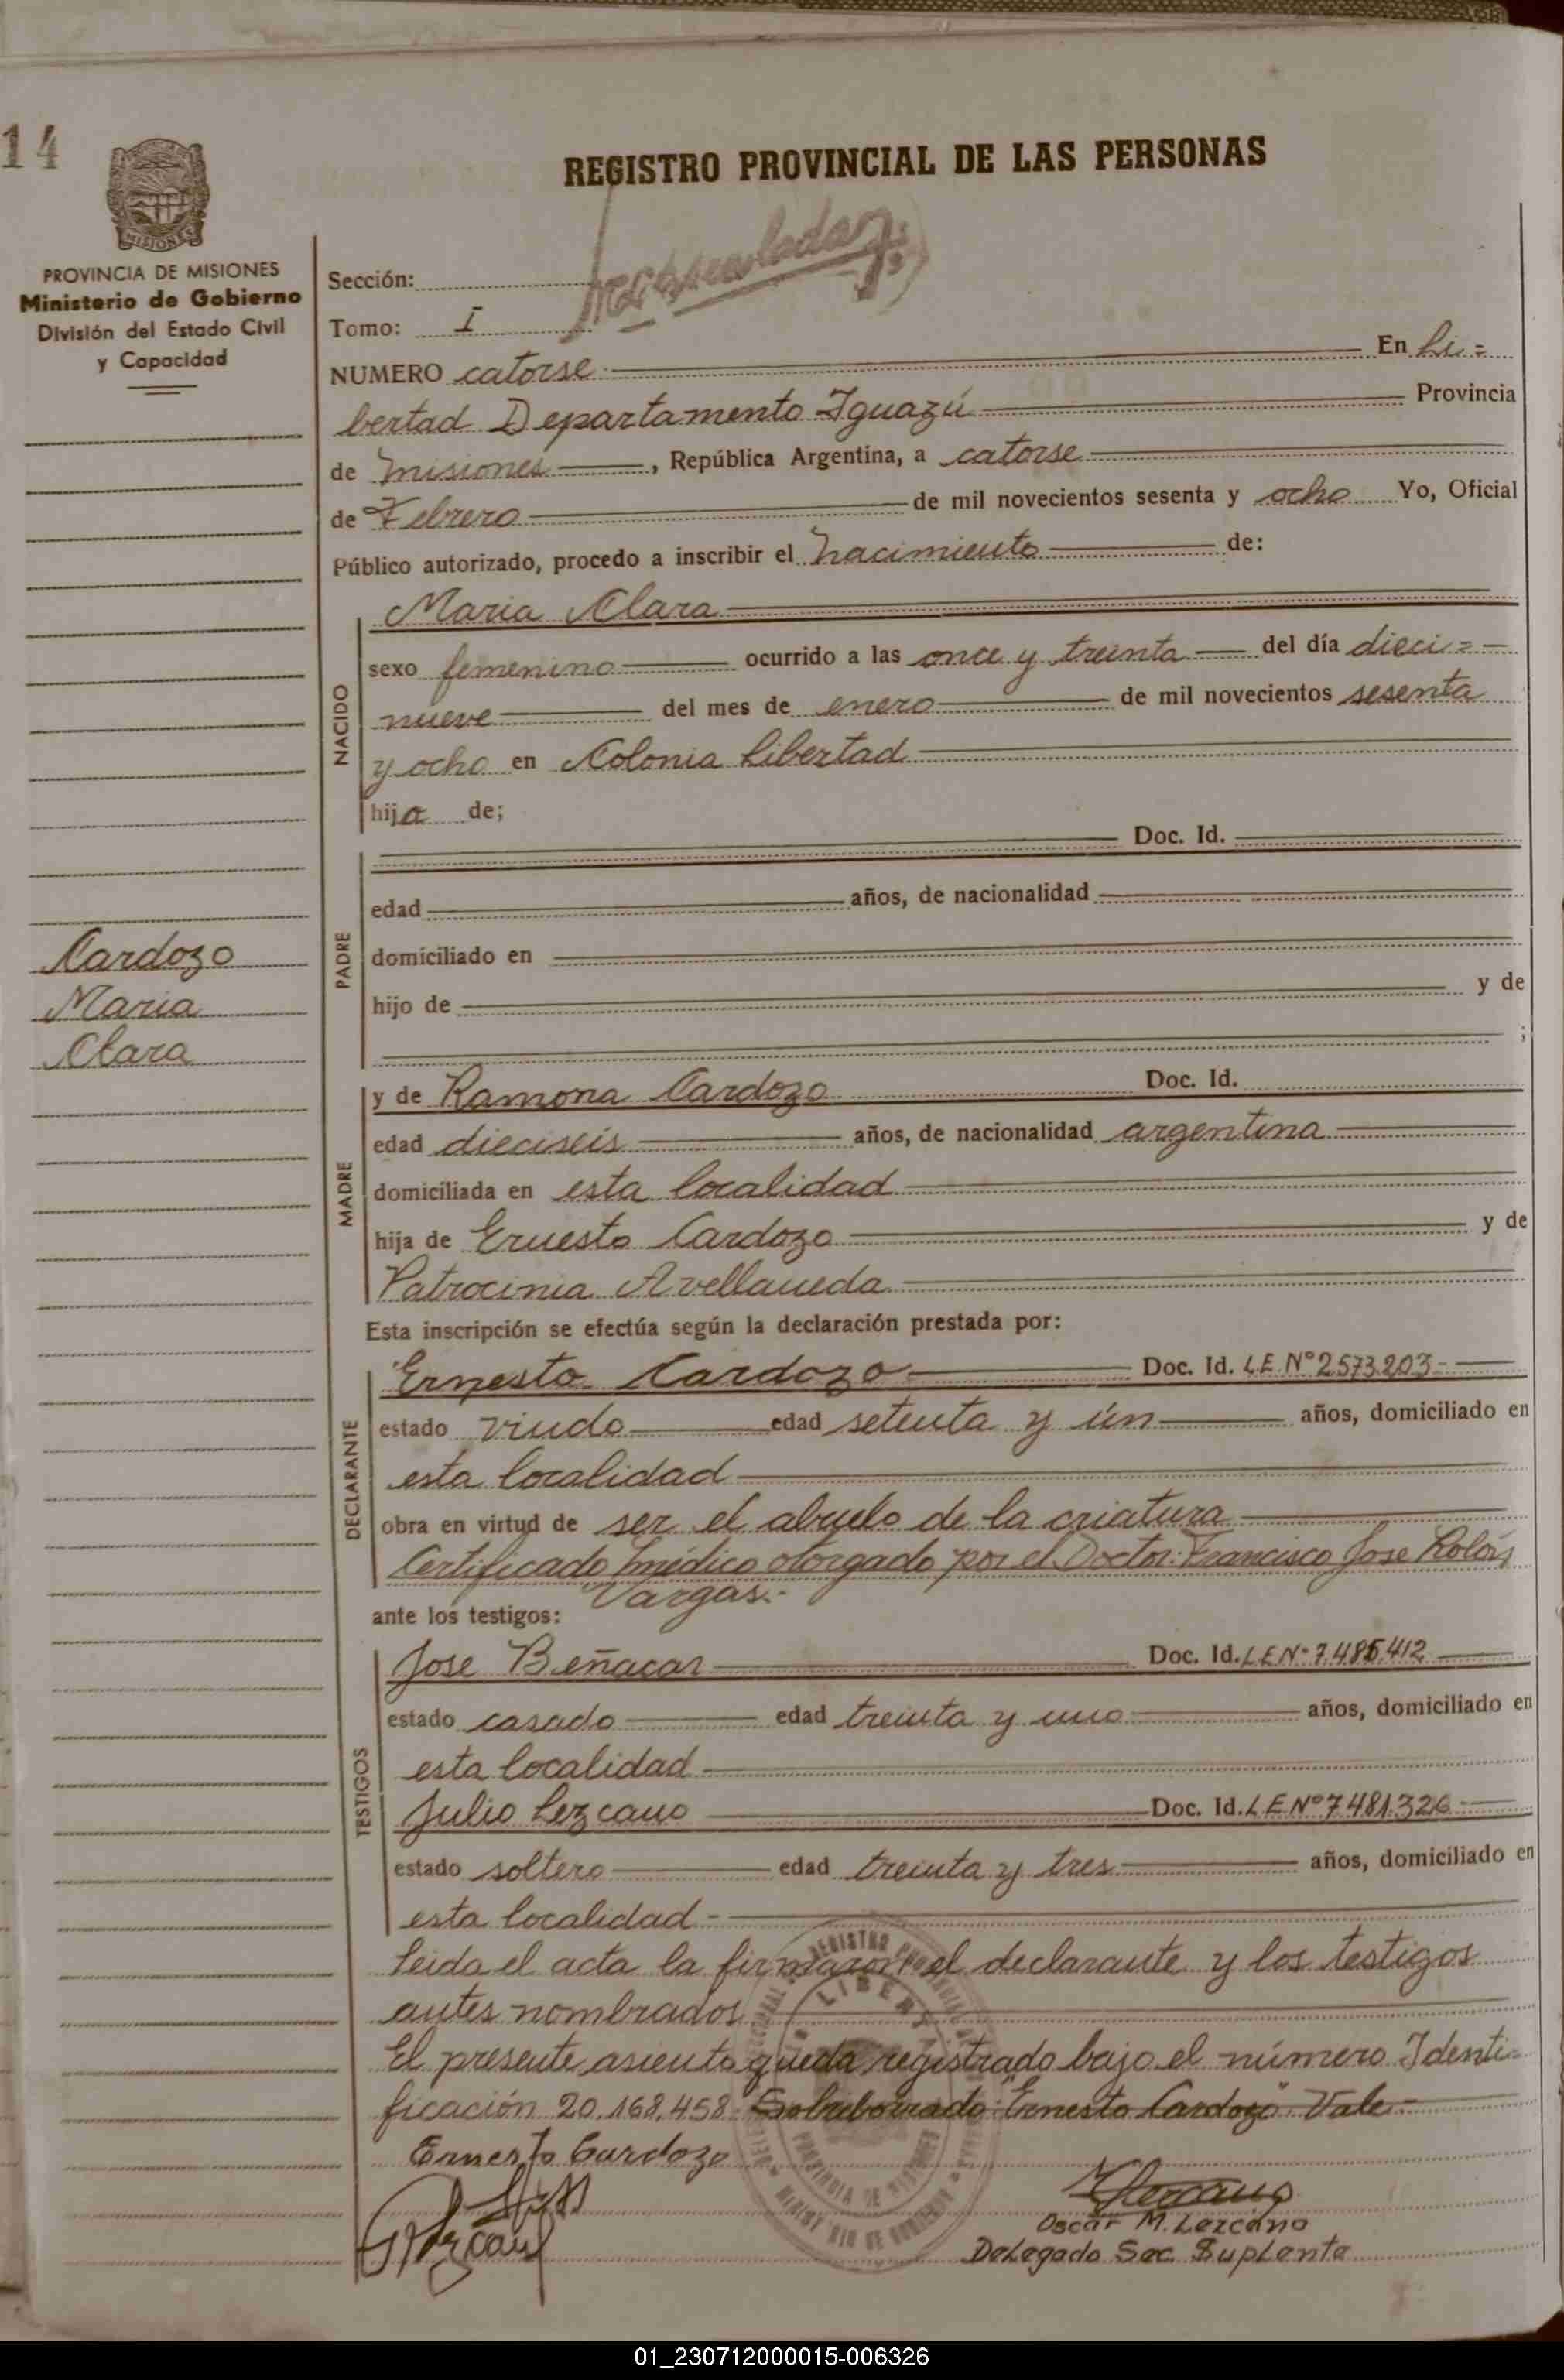 14
REGISTRO PROVINCIAL DE LAS PERSONAS
MISIONES
PROVINCIA DE MISIONES
Ministerio de Gobierno
División del Estado Civil
y Capacidad
Sección:
Tomo: I
NUMERO catorse En Li=
bertad Departamento Iguazú Provincia
de Misiones, República Argentina, a catorse
de Febrero de mil novecientos sesenta y ocho Yo, Oficial
Público autorizado, procedo a inscribir el nacimiento de:
NACIDO
Maria Clara
sexo femenino ocurrido a las once y treinta del día dieci=
nueve del mes de enero de mil novecientos sesenta
y ocho en Colonia Libertad
hija de;
PADRE
Doc. Id.
edad años, de nacionalidad
domiciliado en
hijo de y de
;
Cardozo
Maria
Clara
MADRE
y de Ramona Cardozo Doc. Id.
edad dieciseis años, de nacionalidad argentina
domiciliada en esta localidad
hija de Ernesto Cardozo y de
Patrocinia Avellaneda
Esta inscripción se efectúa según la declaración prestada por:
DECLARANTE
Ernesto Cardozo Doc. Id. L.E. Nº 2573.203-
estado viudo edad setenta y ún años, domiciliado en
esta localidad
obra en virtud de ser el abuelo de la criatura
Certificado médico otorgado por el Doctor: Francisco Jose Rolón
Vargas.-
ante los testigos:
TESTIGOS
Jose Beñacar Doc. Id. L.E Nº 7.485.412
estado casado edad treinta y uno años, domiciliado en
esta localidad
Julio Lezcano Doc. Id. L.E Nº 7481.326
estado soltero edad treinta y tres años, domiciliado en
esta localidad-
Leida el acta la firmaron el declarante y los testigos
antes nombrados
El presente asiento queda registrado bajo el número Identi-
ficación 20.168.458- Sobreborrado: "Ernesto Cardozo" Vale-
Ernesto Cardozo
Oscar M. Lezcano
Delegado Sec. Suplente
01_230712000015-006326